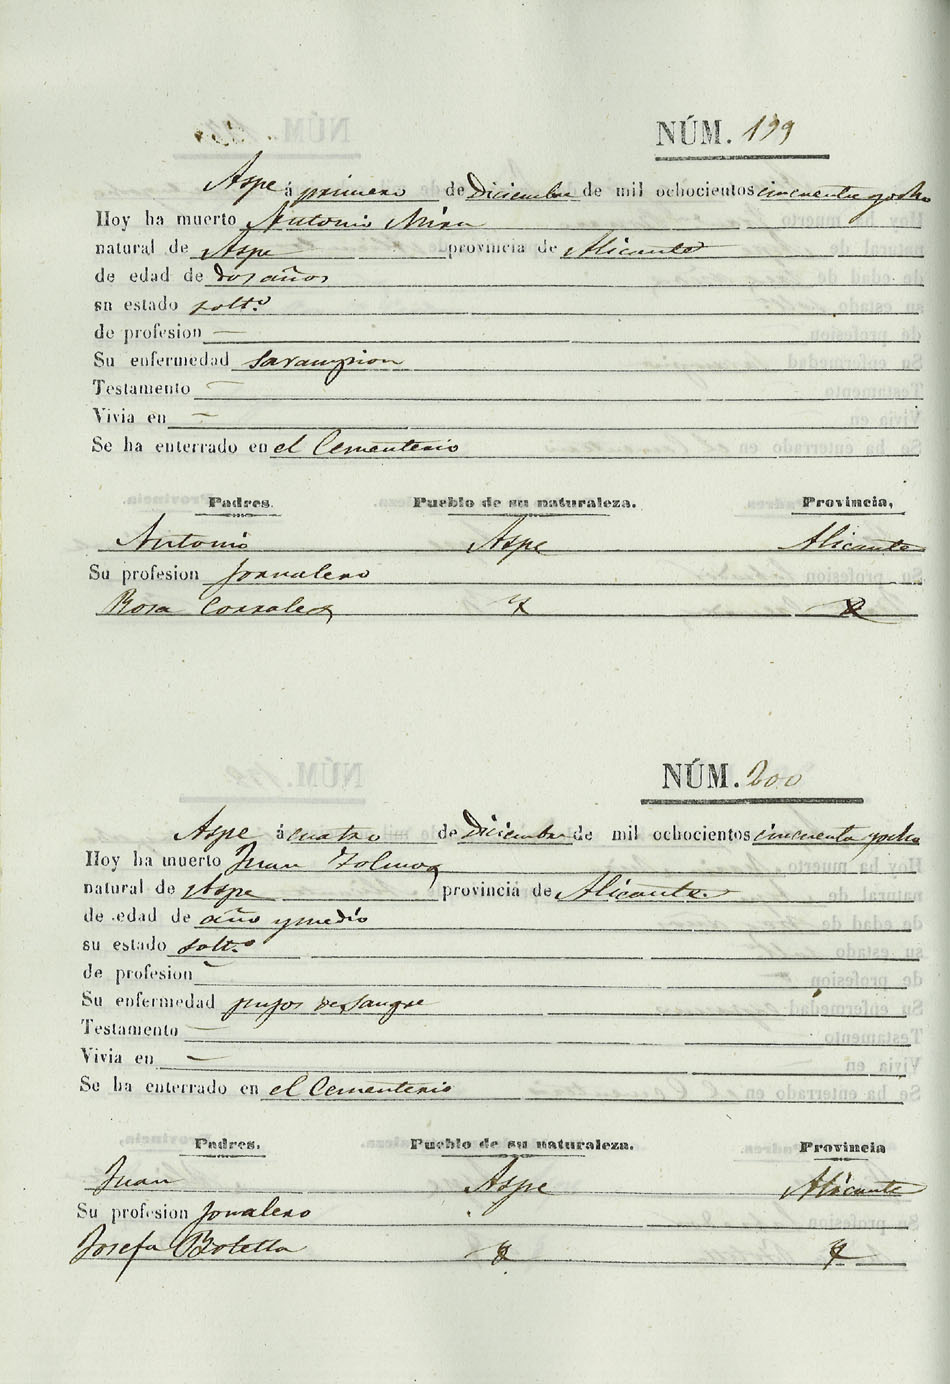 NÚM. 199
Aspe á primero de Diciembre de mil ochocientos cincuenta y ocho
Hoy ha muerto Antonio Miran
natural de Aspe provincia de Alicante
de edad de dos años
su estado solt.º
de profesion —
Su enfermedad sarampion
Testamento —
Vivia en —
Se ha enterrado en el Cementerio
Padres. Pueblo de su naturaleza. Provincia,
Antonio Aspe Alicante
Su profesion Jornalero
Rosa Corrales
NÚM. 200
Aspe á cuatro de Diciembre de mil ochocientos cincuenta y ocho
Hoy ha muerto Juan
natural de Aspe provincia de Alicante
de edad de año y medio
su estado solt.º
de profesion —
Su enfermedad pujos de sangre
Testamento —
Vivia en —
Se ha enterrado en el Cementerio
Padres. Pueblo de su naturaleza. Provincia
Juan Aspe Alicante
Su profesion Jornalero
Josefa Botella